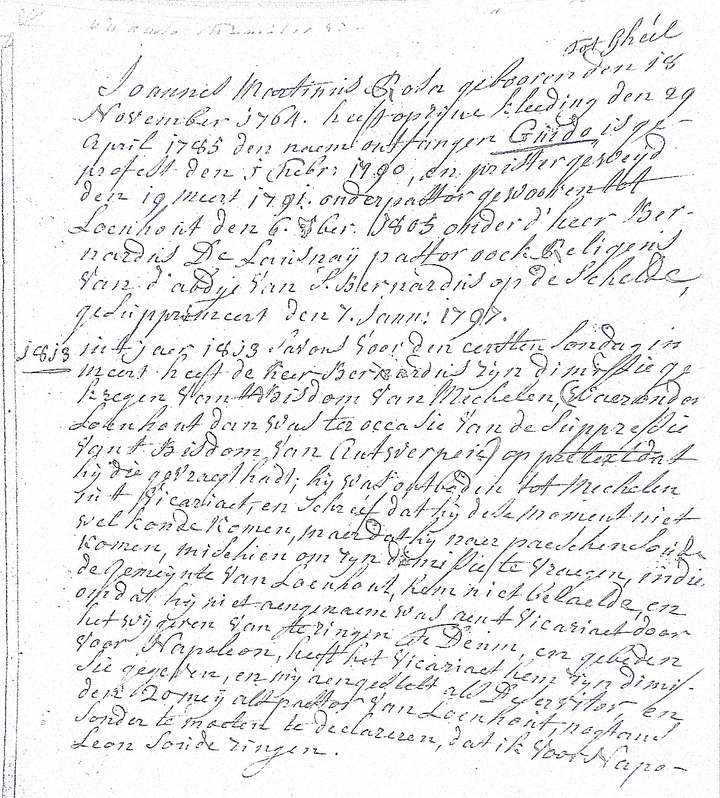 tot Ghéel
Joannes Martinus Rosa gebooren den 18
November 1764. heeft op zijne kleeding den 29
April 1785 den naem ontfangen Guido, is ge-
profest den 1 Febr: 1790, en priester geweyd
den 19 meert 1791. onderpastor gewooren tot
Loenhout den 6. 8ber. 1805 onder d'heer Ber-
nardus De Lausnaÿ pastor oock Religeus
van d'abdye van S. Bernardus op de Schelde,
gesupprimeert den 7. Jann: 1797.
1813 in t jaer 1813 savons voor den eersten sondag in
meert heeft de heer Bernardus zyn dimissie ge
kregen van Bisdom van Mechelen, (waer onder
Loenhout dan was ter occasie van de suppressie
van t Bisdom van Antwerpen) op pretext dat
hij die gevraegt hadt; hij was ontboden tot Mechelen
in t Vicariaet, en schreef dat hij dese moment niet
wel konde komen, maer dat hij naer paeschen soude
komen, mischien om zyn dimissie te vraegen, indien
de gemeynte van Loenhout, hem niet betaelde, en
omdat hij niet aengenaem was aen t Vicariaet door
het wijgeren van te zingen Te Deum, en gebeden
voor Napoleon, heeft het Vicariaet hem zyn dimis-
sie gegeven, en mij aengestelt als Deservitor, en
den 20 meij als pastor van Loenhout, nogtans
sonder te moeten te declareren, dat ik voor Napo-
leon soude zingen.